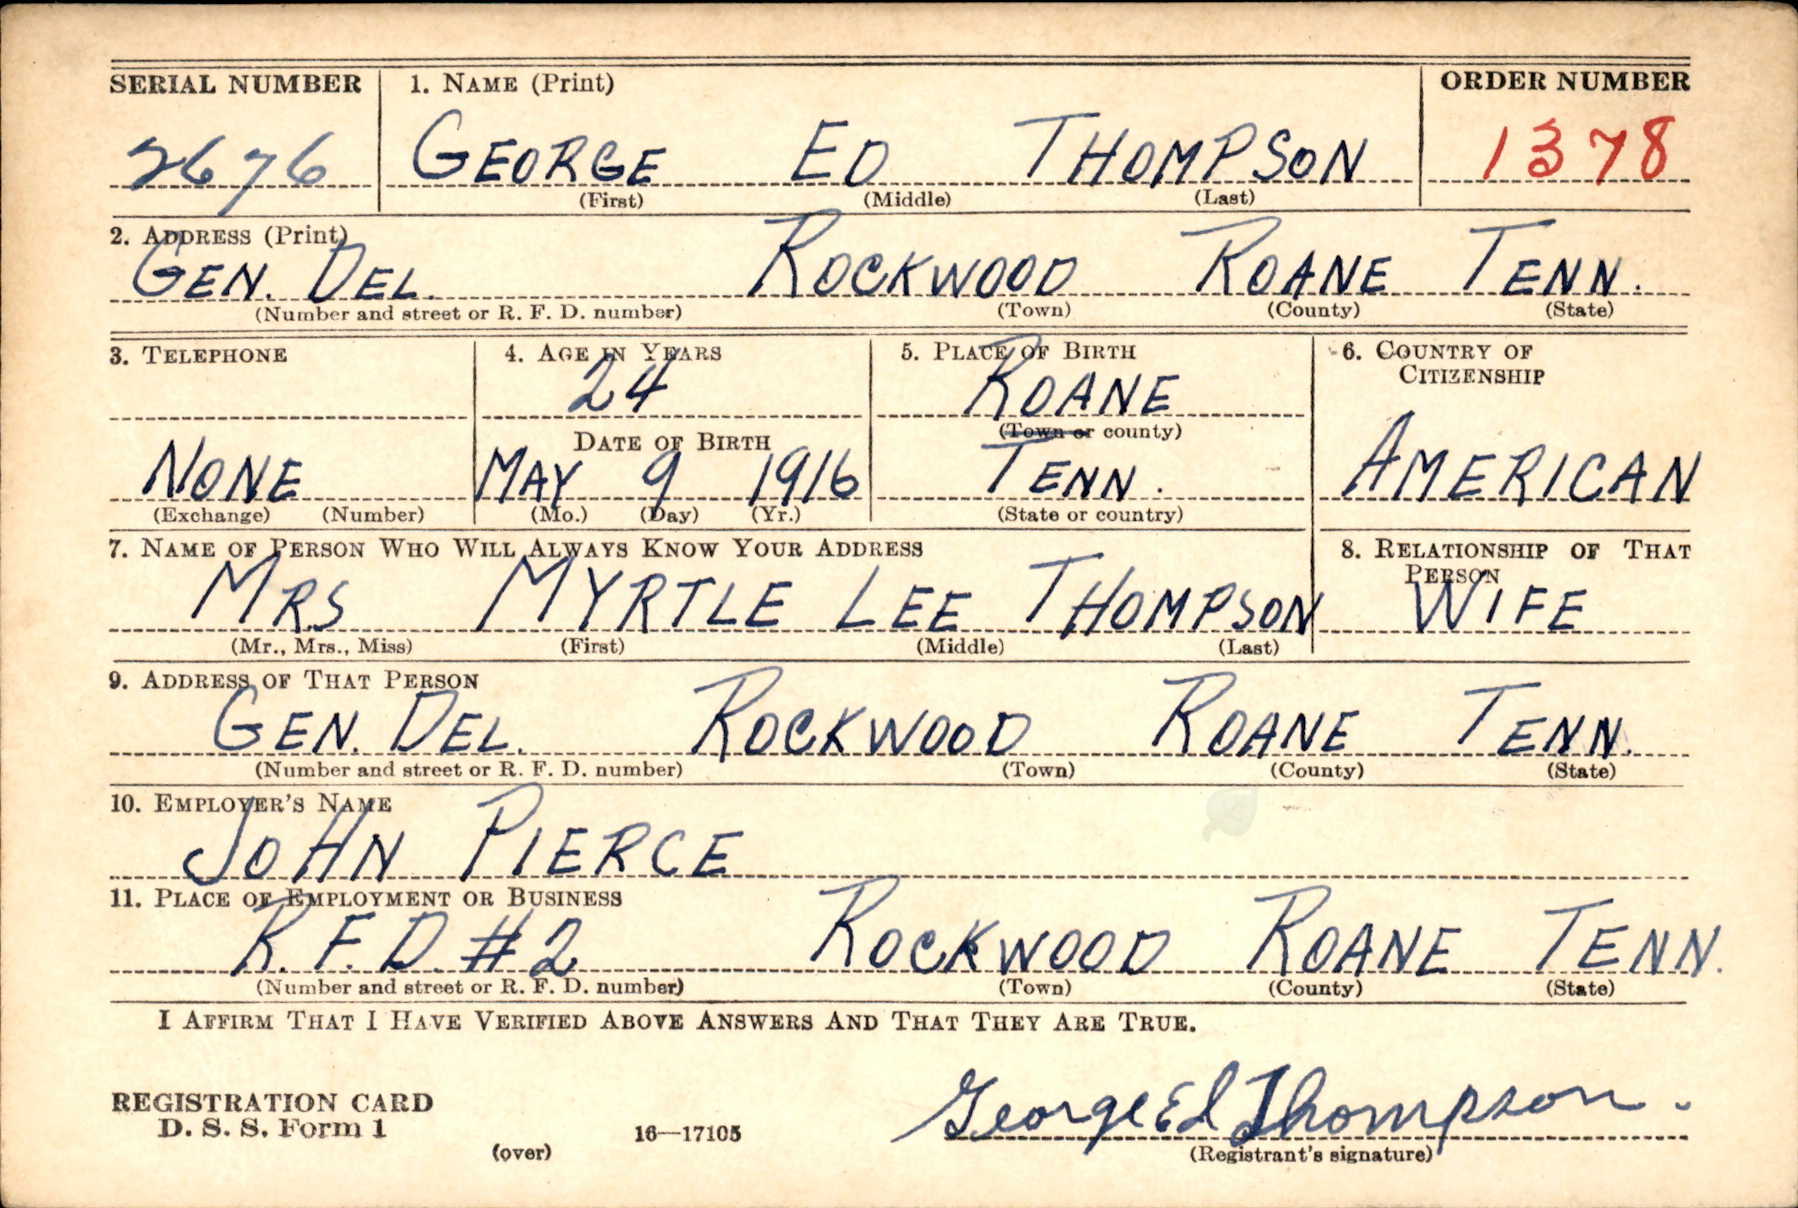 SERIAL NUMBER 1. NAME (Print) ORDER NUMBER
2676 GEORGE ED THOMPSON 1378
(First) (Middle) (Last)
2. ADDRESS (Print)
GEN. DEL. ROCKWOOD ROANE TENN.
(Number and street or R. F. D. number) (Town) (County) (State)
3. TELEPHONE 4. AGE IN YEARS 5. PLACE OF BIRTH 6. COUNTRY OF
CITIZENSHIP
24 ROANE
DATE OF BIRTH (Town or county)
NONE MAY 9 1916 TENN. AMERICAN
(Exchange) (Number) (Mo.) (Day) (Yr.) (State or country)
7. NAME OF PERSON WHO WILL ALWAYS KNOW YOUR ADDRESS 8. RELATIONSHIP OF THAT
PERSON
MRS MYRTLE LEE THOMPSON WIFE
(Mr., Mrs., Miss) (First) (Middle) (Last)
9. ADDRESS OF THAT PERSON
GEN. DEL. ROCKWOOD ROANE TENN.
(Number and street or R. F. D. number) (Town) (County) (State)
10. EMPLOYER'S NAME
JOHN PIERCE
11. PLACE OF EMPLOYMENT OR BUSINESS
R. F. D. #2 ROCKWOOD ROANE TENN.
(Number and street or R. F. D. number) (Town) (County) (State)
I AFFIRM THAT I HAVE VERIFIED ABOVE ANSWERS AND THAT THEY ARE TRUE.
REGISTRATION CARD
D. S. S. Form 1
George Ed Thompson.
(over) 16—17105 (Registrant's signature)